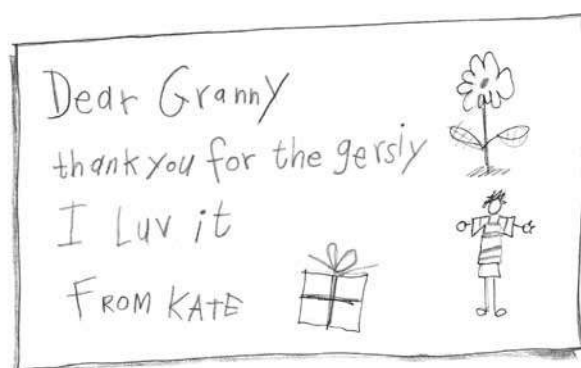 Dear Granny
thank you for the gersiy
I Luv it
FROM KATE